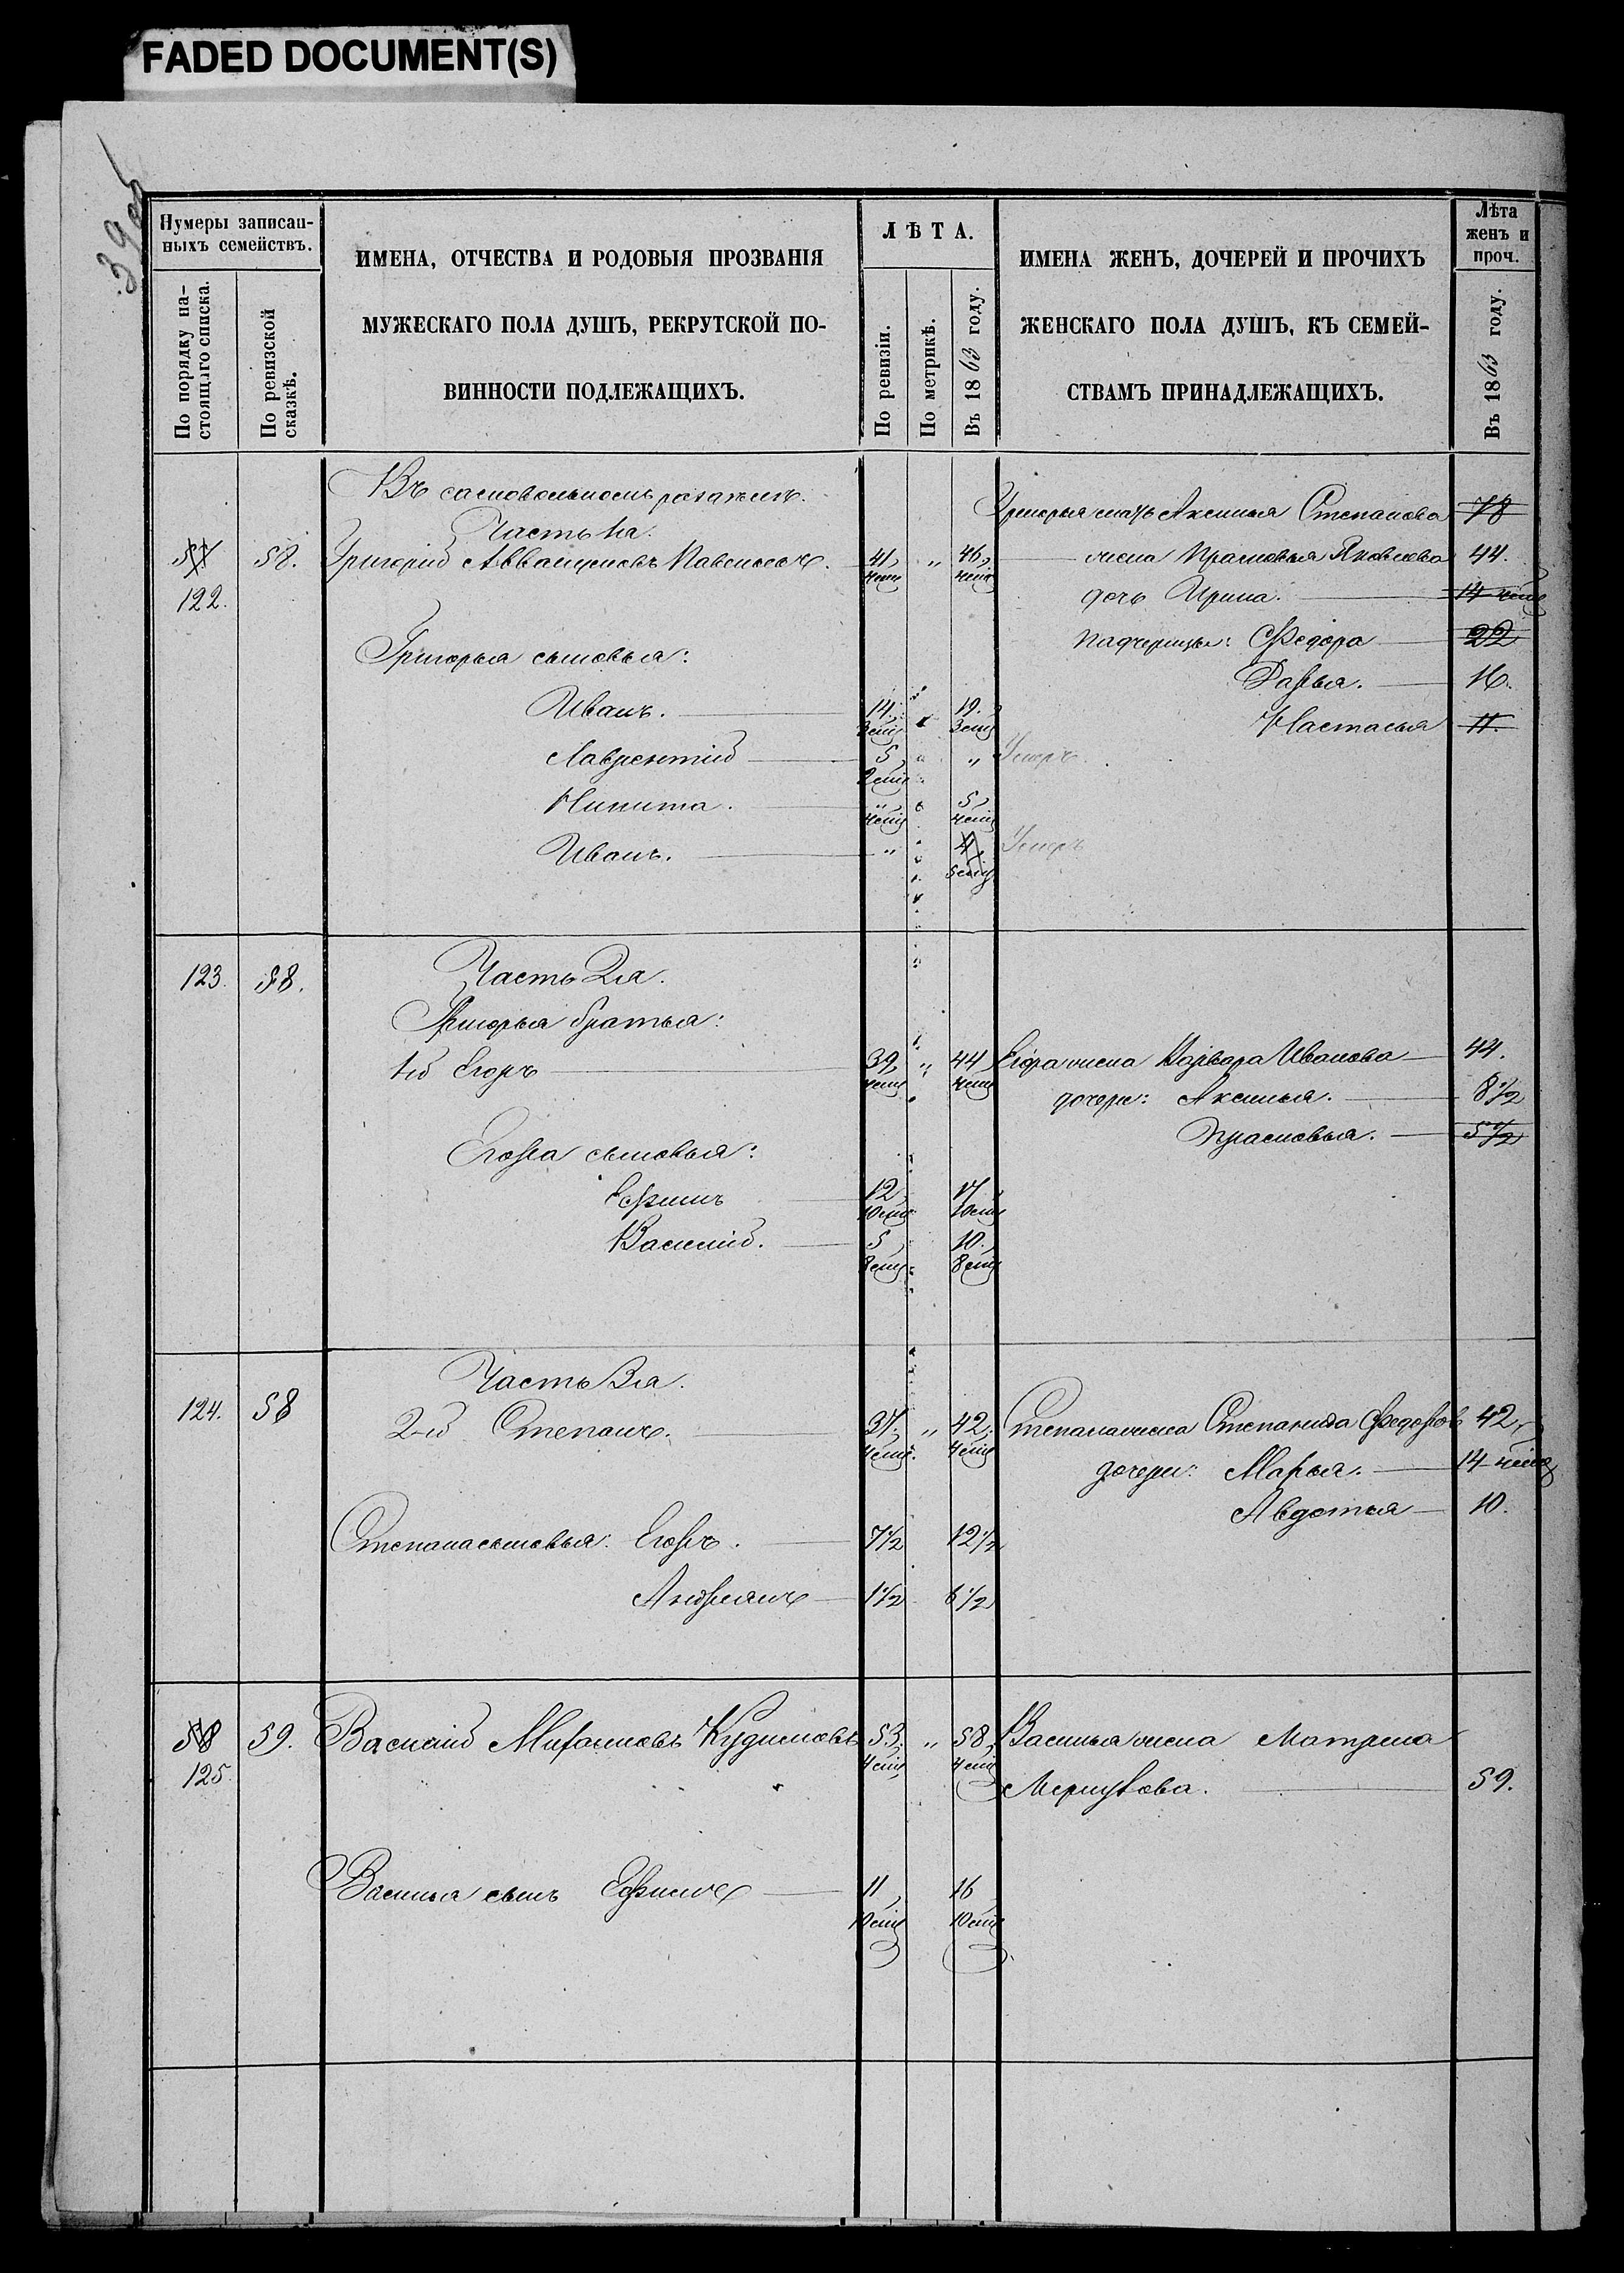 FADED DOCUMENT(S)
39об
Нумеры записан-
ныхъ семействъ.
По порядку на-
стоящаго списка.
По ревизской
сказкѣ.
ИМЕНА, ОТЧЕСТВА И РОДОВЫЯ ПРОЗВАНІЯ
МУЖЕСКАГО ПОЛА ДУШЪ, РЕКРУТСКОЙ ПО-
ВИННОСТИ ПОДЛЕЖАЩИХЪ.
ЛѢТА.
По ревизіи.
По метрикѣ.
Въ 1863 году.
ИМЕНА ЖЕНЪ, ДОЧЕРЕЙ И ПРОЧИХЪ
ЖЕНСКАГО ПОЛА ДУШЪ, КЪ СЕМЕЙ-
СТВАМЪ ПРИНАДЛЕЖАЩИХЪ.
Лѣта
женъ и
проч.
Въ 1863 году.
Въ самовольномъ
Григорья мать Аксинья Степанова 78
Часть 1я.
57 58. Григорій 41, " 46, жена Прасковья Яковлева 44.
122. дочь Ирина. 14
Григорья сыновья: падчерицы: Федора 22
Дарья. 16.
Иванъ. 14, 19. Настасья 11.
Лаврентій 5 " Умеръ
Никита. " 5,
Иванъ. " 4 Умеръ
123. 58. Часть 2я.
Григорья братья:
1й Егоръ 39, " 44, Егора жена Варвара Иванова 44.
дочери: Аксинья. 8 1/2
Егора сыновья: Прасковья. 5 1/2
Ефимъ 12 17
Василій. 5 10.
Часть 3я.
124. 58 2-й Степанъ. 37. " 42. Степана жена Степанида Федоров 42
дочери: Марья. 14
Авдотья 10.
Степана сыновья: Егоръ. 7 1/2 12 1/2
Андреянъ 1 1/2 6 1/2
58 59. Василій Кудимовъ 53. " 58, Василья жена Матрена
125. 59.
Василья сынъ Ефимъ 11 16